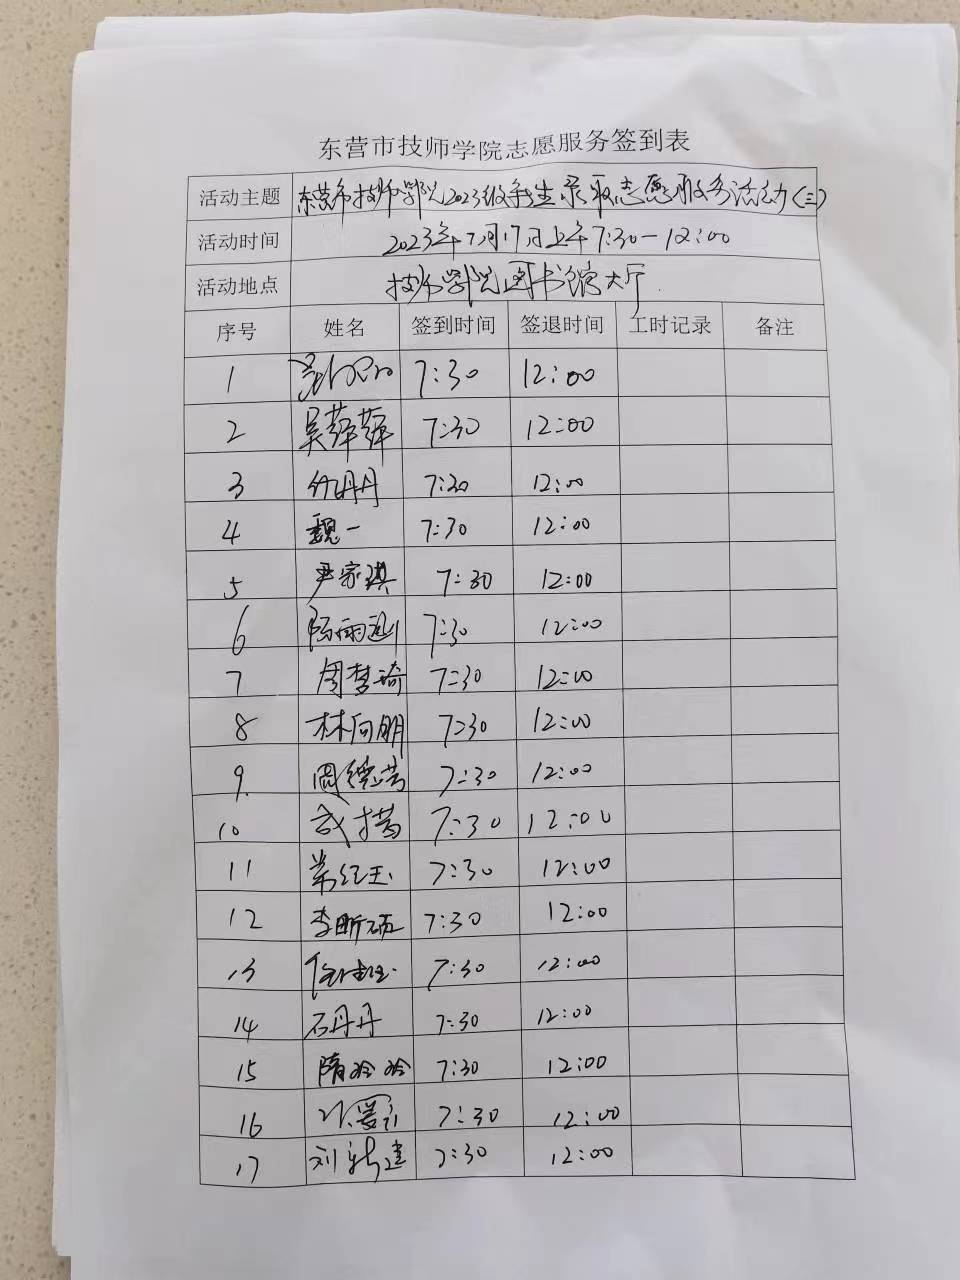 东营市技师学院志愿服务签到表
活动主题 东营市技师学院2023级新生录取志愿服务活动(三)
活动时间 2023年7月17日上午7:30-12:00
活动地点 技师学院图书馆大厅
序号 姓名 签到时间 签退时间 工时记录 备注
1 7:30 12:00
2 吴萍萍 7:30 12:00
3 丹丹 7:30 12:00
4 魏一 7:30 12:00
5 尹家琪 7:30 12:00
6 陈雨 7:30 12:00
7 周梦琦 7:30 12:00
8 林向朋 7:30 12:00
9. 周德芳 7:30 12:00
10 7:30 12:00
11 常红玉 7:30 12:00
12 李昕硕 7:30 12:00
13 任佳 7:30 12:00
14 石丹丹 7:30 12:00
15 隋玲玲 7:30 12:00
16 7:30 12:00
17 刘新建 7:30 12:00